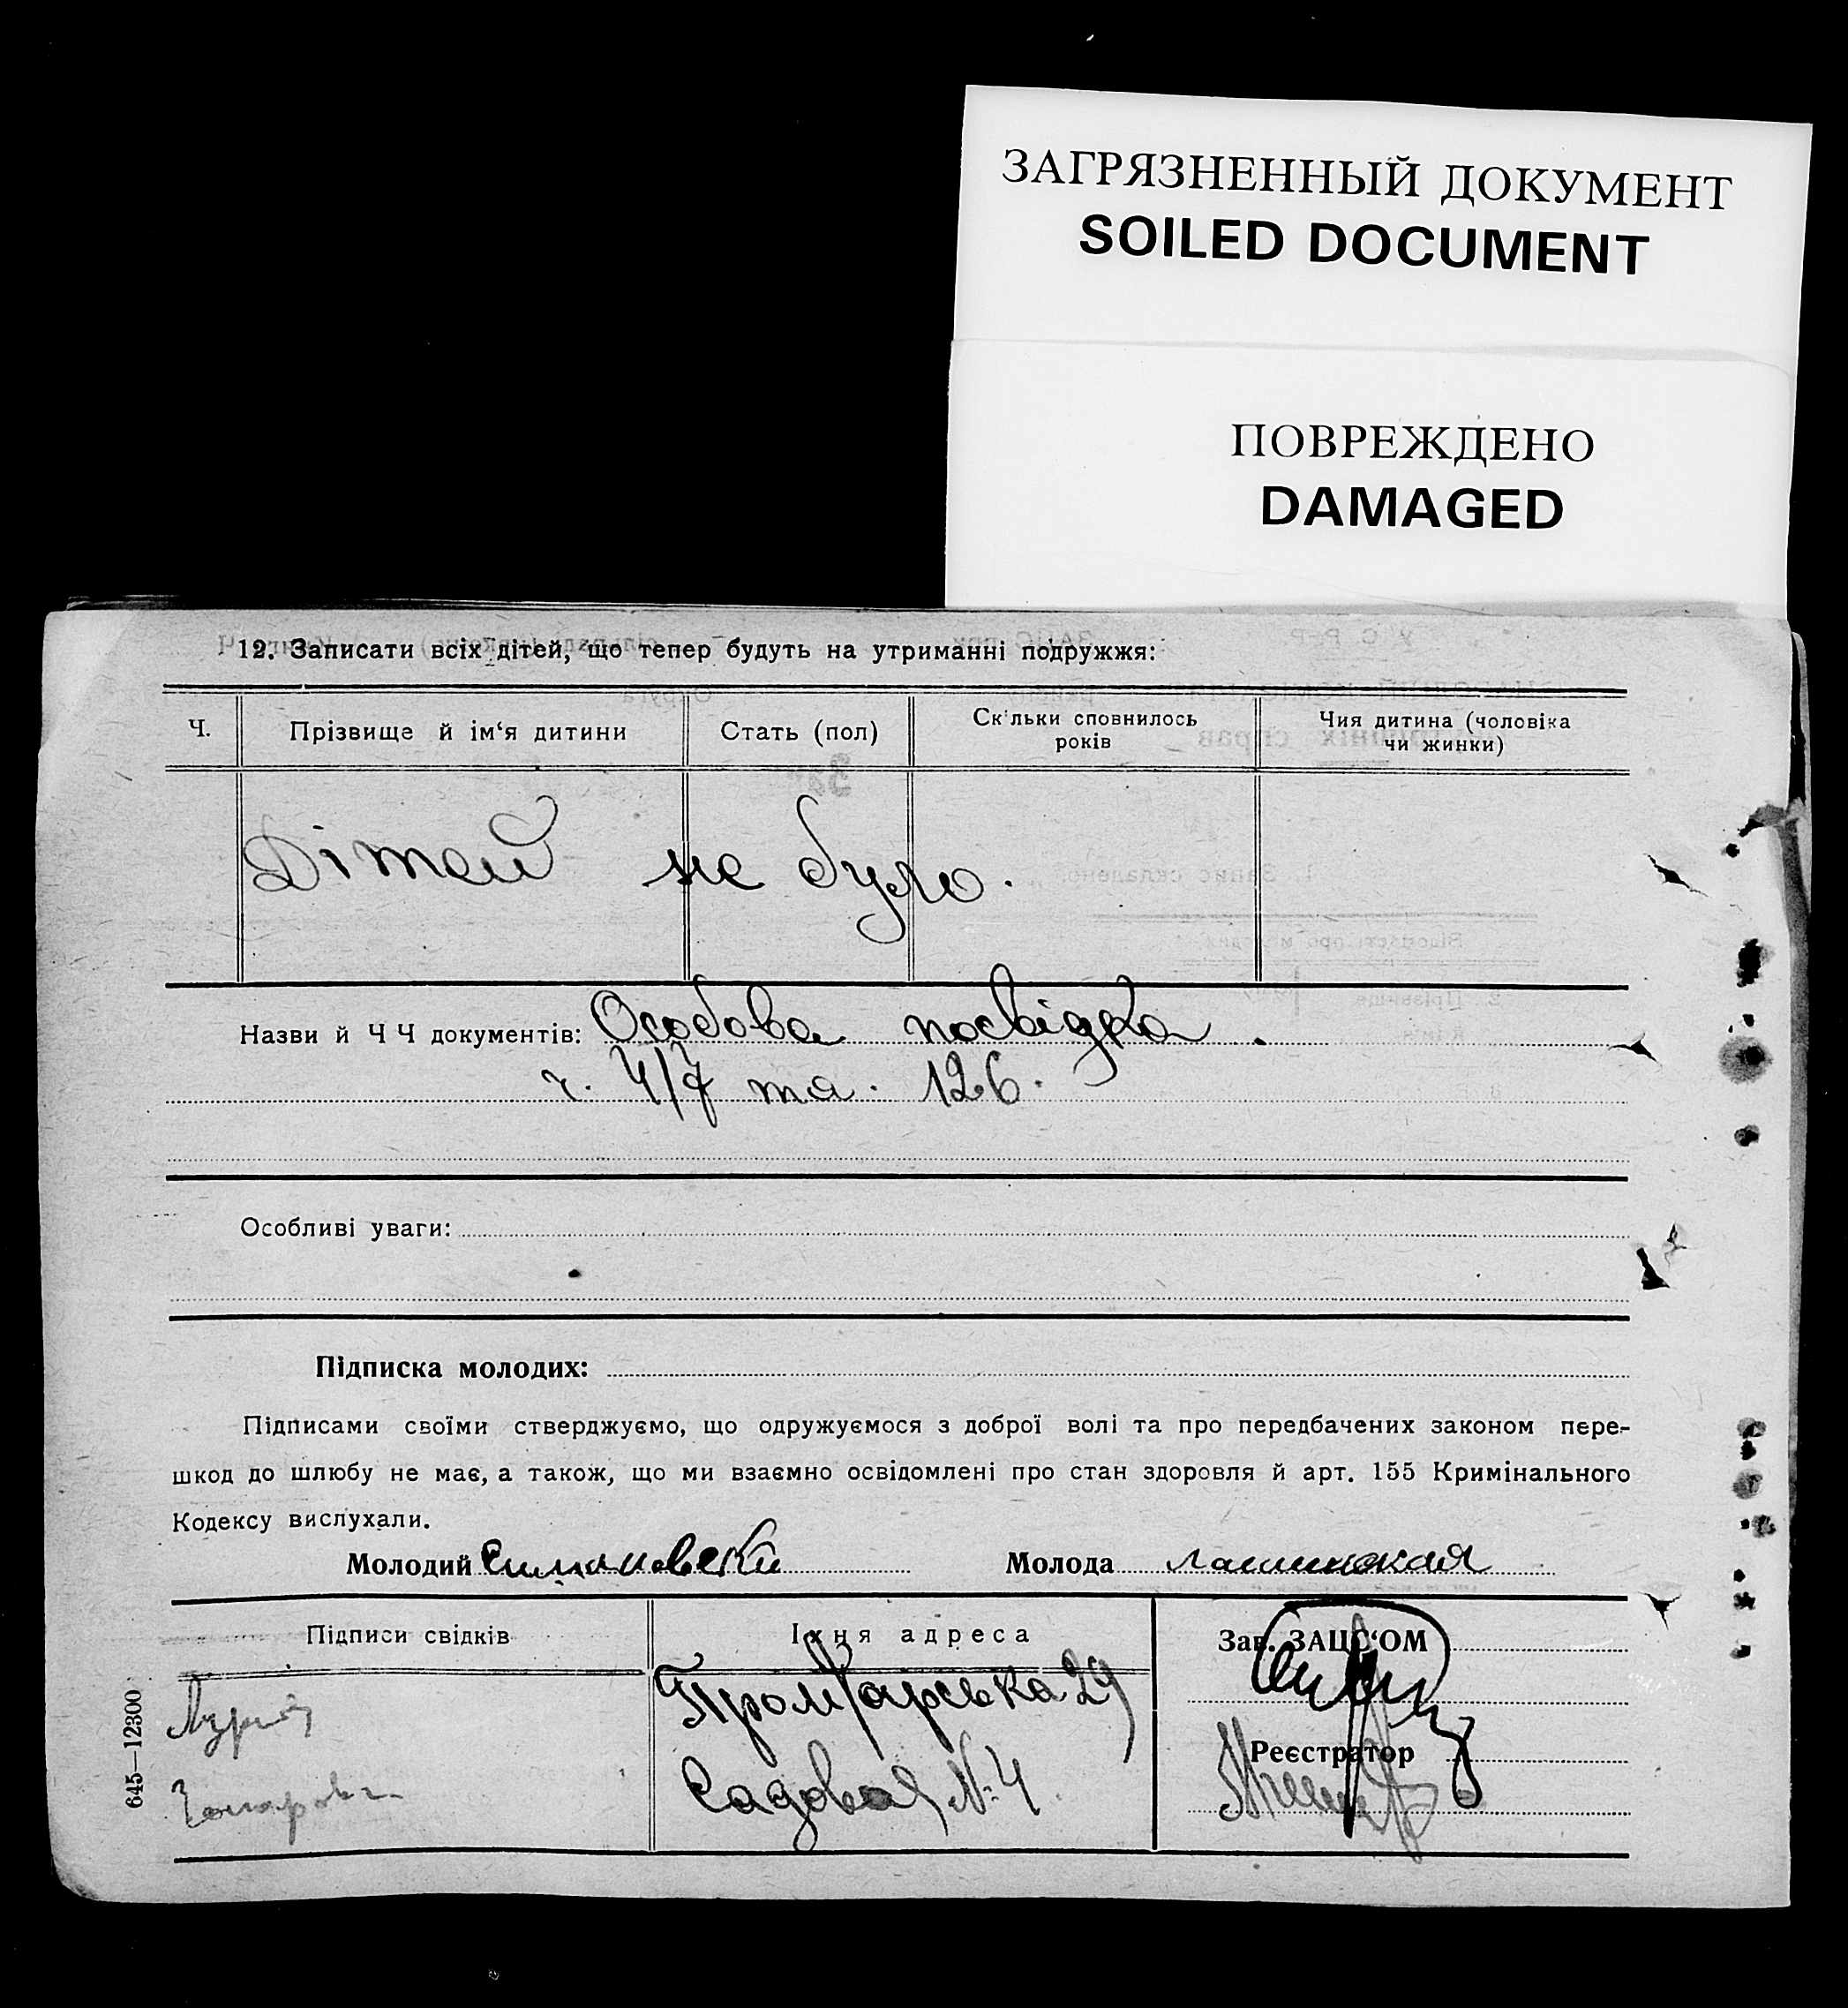 ЗАГРЯЗНЕННЫЙ ДОКУМЕНТ
SOILED DOCUMENT
ПОВРЕЖДЕНО
DAMAGED
12. Записати всіх дітей, що тепер будуть на утриманні подружжя:
Ч. Прізвище й ім‘я дитини Стать (пол) Скільки сповнилось років Чия дитина (чоловіка чи жинки)
Дітей не було.
Назви й Ч Ч документів: Особова посвідка.
ч. 4/7 та. 126.
Особливі уваги:
Підписка молодих:
Підписами своїми стверджуємо, що одружуємося з доброї волі та про передбачених законом пере-
шкод до шлюбу не має, а також, що ми взаємно освідомлені про стан здоровля й арт. 155 Кримінального
Кодексу вислухали.
Молодий Молода
Підписи свідків Їхня адреса Зав. ЗАЦС‘ОМ
29
Реєстратор
Садовая № 4
645—12300